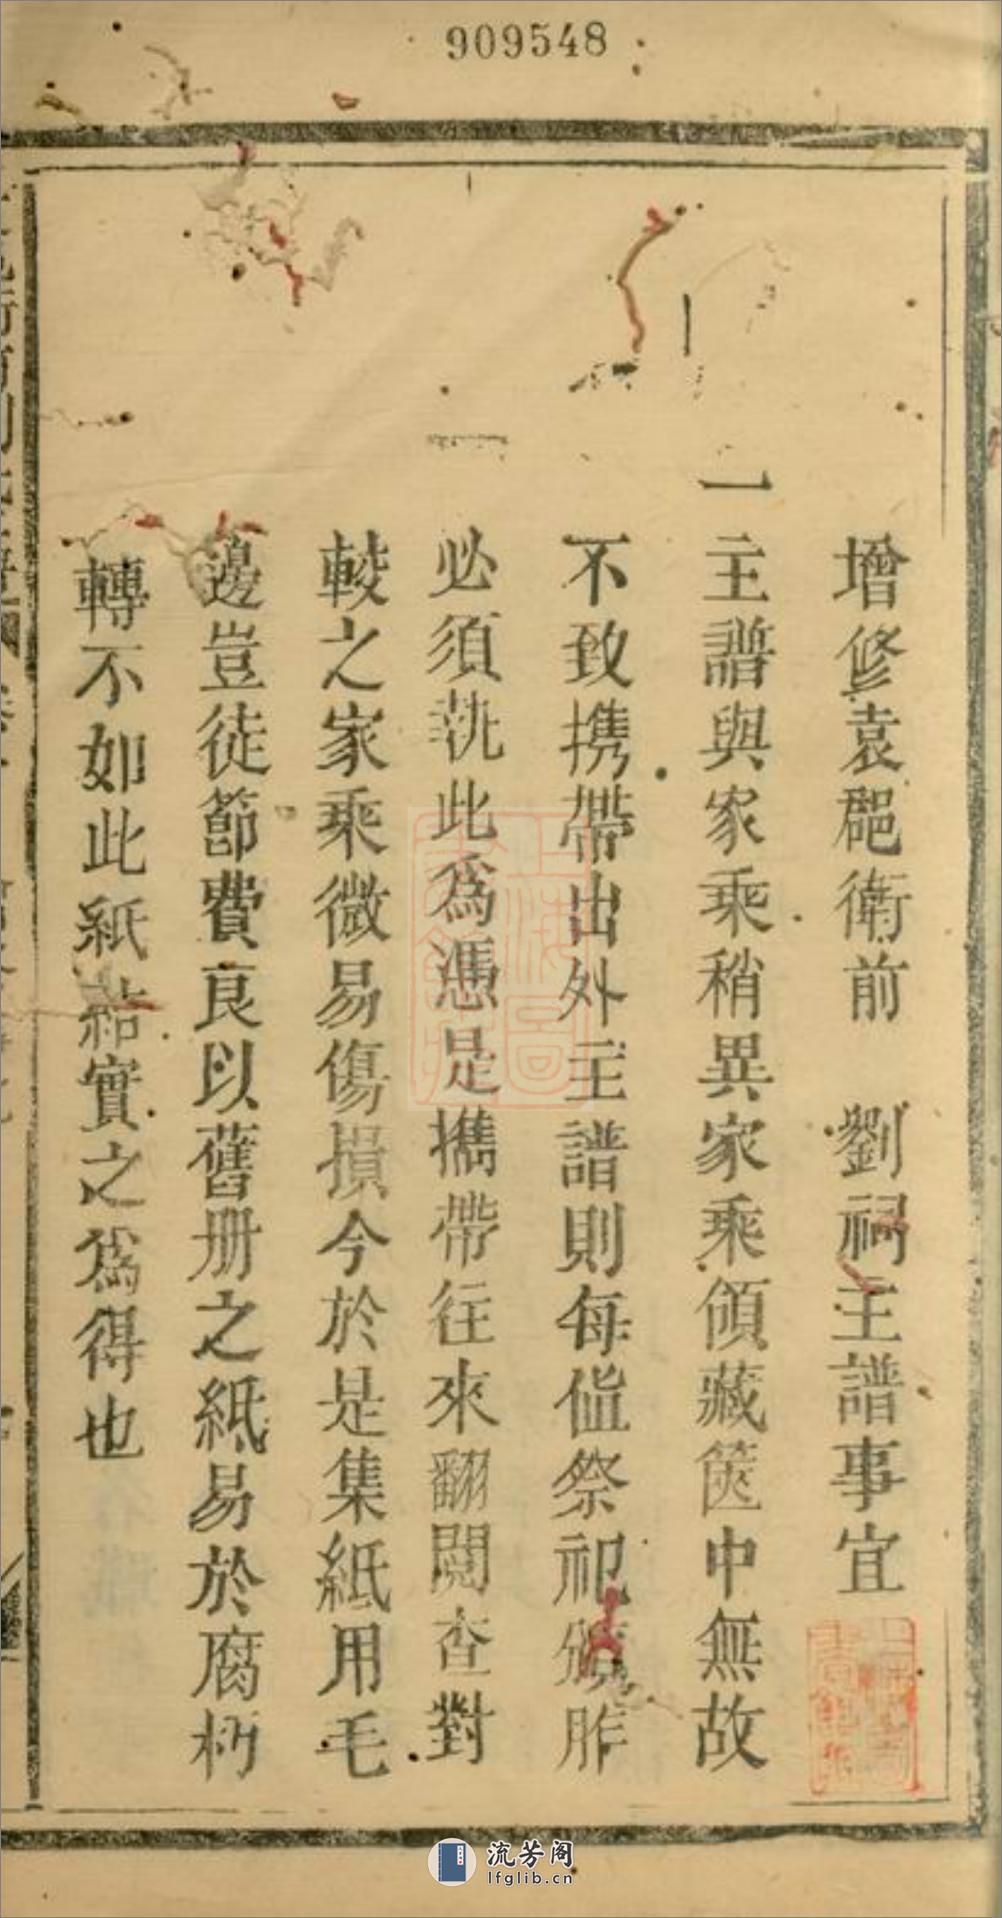 909548
增修袁郡衛前　劉祠主譜事宜
一主譜與家乘稍異家乘頒藏篋中無故
不致攜帶出外主譜則每值祭祀頒胙
必須執此為憑是攜帶往來翻閱查對
較之家乘微易傷損今於是集紙用毛
邊豈徒節費良以舊册之紙易於腐朽
轉不如此紙結實之為得也
上海圖書館藏
上海圖書館藏
流芳阁
lfglib.cn